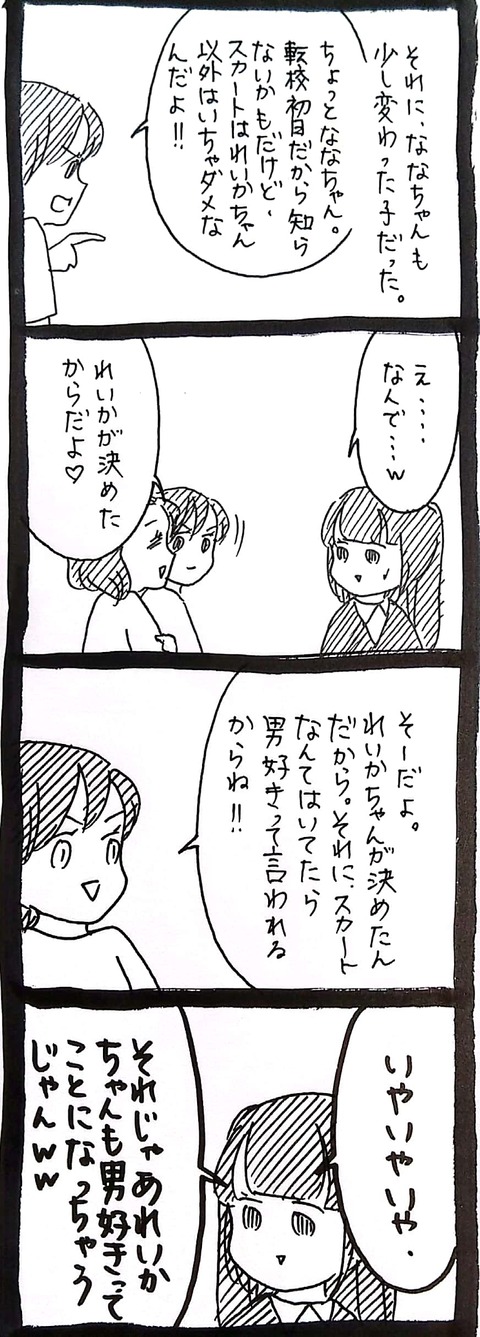 それに、ななちゃんも
少し変わった子だった。
ちょっとななちゃん。
転校初日だから知ら
ないかもだけど、
スカートはれいかちゃん
以外はいちゃダメな
んだよ!!
え....
なんで...w
れいかが決めた
からだよ♡
そーだよ。
れいかちゃんが決めたん
だから。それに、スカート
なんてはいてたら
男好きって言われる
からね!!
いやいやいや.
それじゃあれいか
ちゃんも男好きって
ことになっちゃう
じゃんww